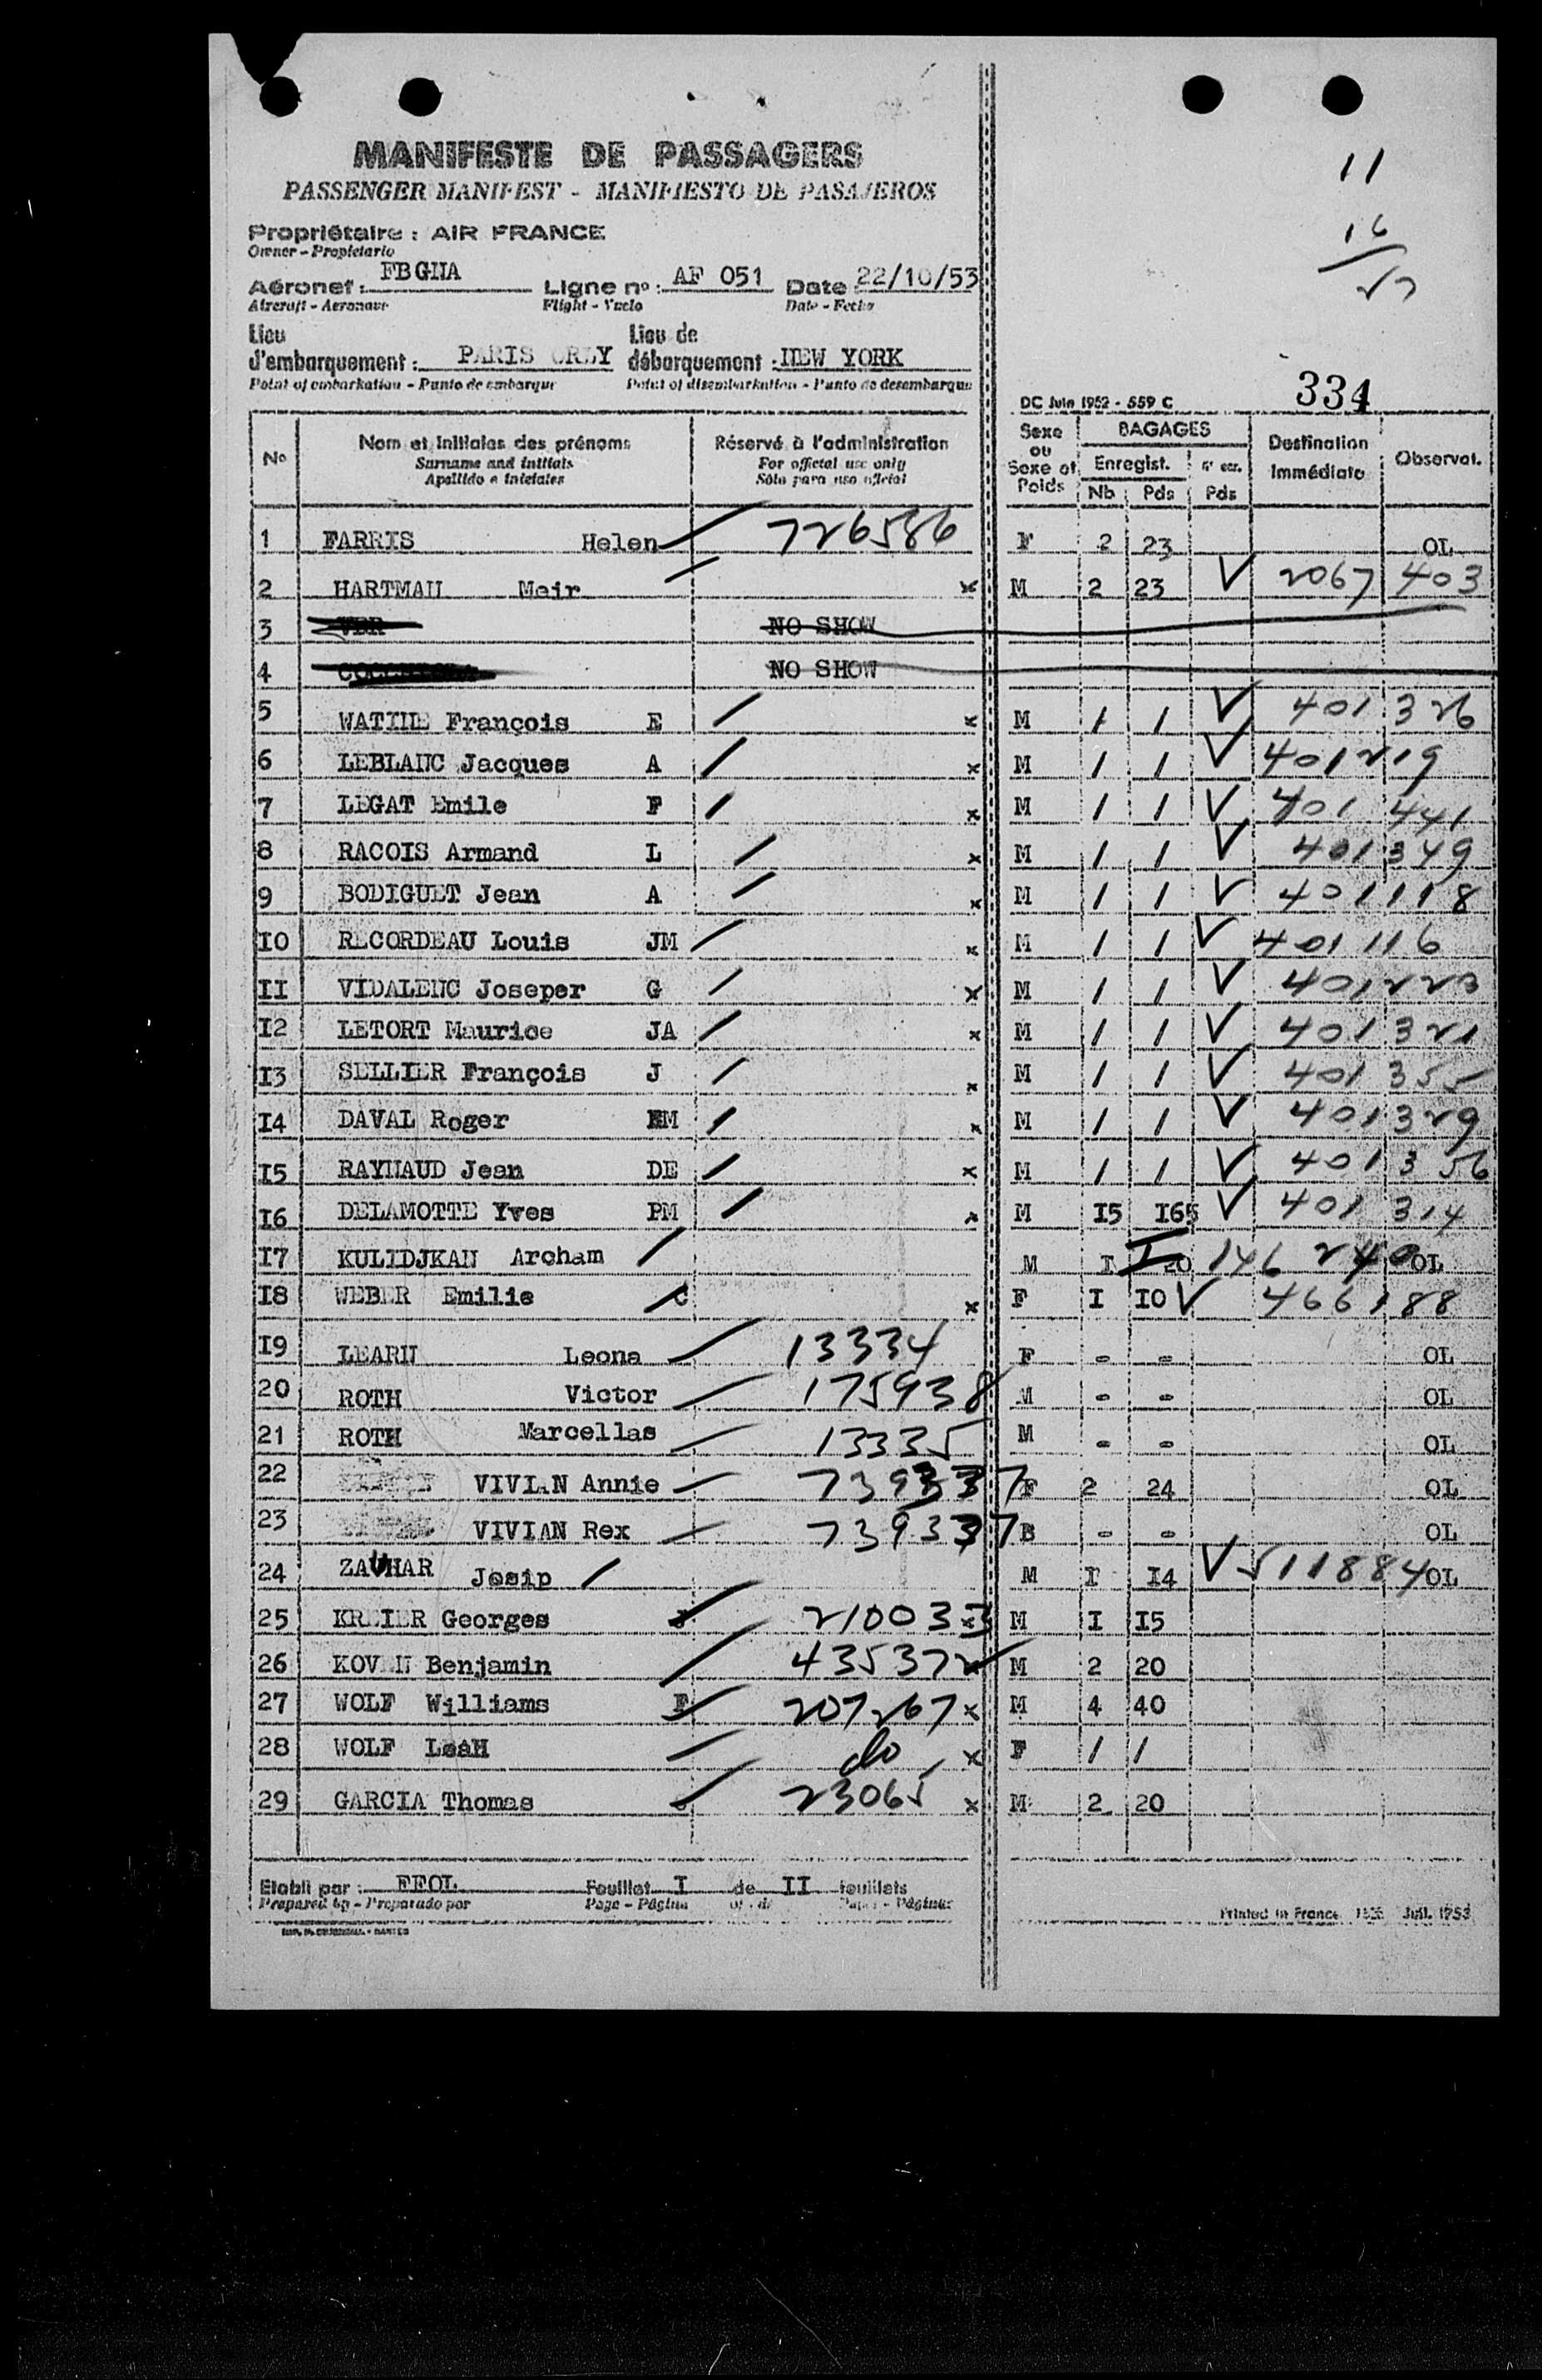 MANIFESTE DE PASSAGERS
PASSENGER MANIFEST - MANIFIESTO DE PASAJEROS
11
16
27
Propriétaire : AIR FRANCE
Owner - Propietario
Aéronef : FBGNA Ligne no : AF 051 Date 22/10/53
Aircraft - Aeronave Flight - Vuelo Date - Fecha
Lieu d'embarquement : PARIS ORLY Lieu de débarquement : NEW YORK
Point of embarkation - Punto de embarque Point of disembarkation - Punto de desembarque
DC Juin 1952 - 559 C 334
No Nom et initiales des prénoms Réservé à l'administration Sexe ou Sexe et Poids BAGAGES Destination Immédiate Observat.
Surname and initials For official use only Enregist.
Apellido e iniciales Sólo para uso oficial Nb Pds Pds
1 FARRIS Helen 726586 F 2 23 OL
2 HARTMAN Meir x M 2 23 V 2067 403
3 NO SHOW
4 NO SHOW
5 WATINE François E / x M / / V 401 326
6 LEBLANC Jacques A / x M / / V 401219
7 LEGAT Emile F / x M / / V 401 441
8 RACOIS Armand L / x M / / V 401349
9 BODIGUET Jean A / x M / / V 401118
I0 RECORDEAU Louis JM / x M / / V 401 116
II VIDALENC Joseper G / x M / / V 401223
I2 LETORT Maurice JA / x M / / V 401 321
I3 SELLIER François J / x M / / V 401 355
I4 DAVAL Roger EM / x M / / V 401329
I5 RAYNAUD Jean DE / x M / / V 401 356
I6 DELAMOTTE Yves PM / x M I5 I65 V 401 314
I7 KULIDJKAN Archam / M I 20 146 240 OL
I8 WEBER Emilie C x F I I0 V 466188
I9 LEARN Leona 13334 F - - OL
20 ROTH Victor 175938 M - - OL
21 ROTH Marcellas 13335 M - - OL
22 VIVIAN Annie 739337 F 2 24 OL
23 VIVIAN Rex 739337 B - - OL
24 ZAUHAR Josip / M I I4 V 511884 OL
25 KREIER Georges J 210033 x M I I5
26 KOVEN Benjamin / 435372 M 2 20
27 WOLF Williams F 207267 x M 4 40
28 WOLF LeaH do x F / /
29 GARCIA Thomas 23065 x M 2 20
Etabli par : FFOL Feuillet I de II feuillets
Prepared by - Preparado por Page - Página
Printed in France Juil. 1953